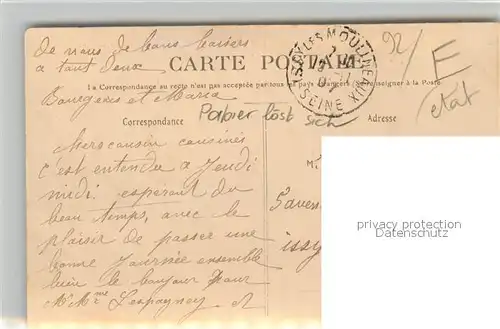 de nous de bons baisers
a tout deux
CARTE POSTALE
La Correspondance au recto n'est pas acceptée par tous les pays
seigner à la Poste
et Maria
Papier löst sich
Correspondance
Adresse
ISSY LES MOULINEAUX
SEINE
92/
E
état
Mers cousin cousines
c'est entendu a Jeudi
midi esperont du
beau temps, avec le
plaisir de passer une
bonne Journée ensemble
bien le bonjour pour
Mr Mme Lespagney et
M
5 aven
issy
privacy protection
Datenschutz